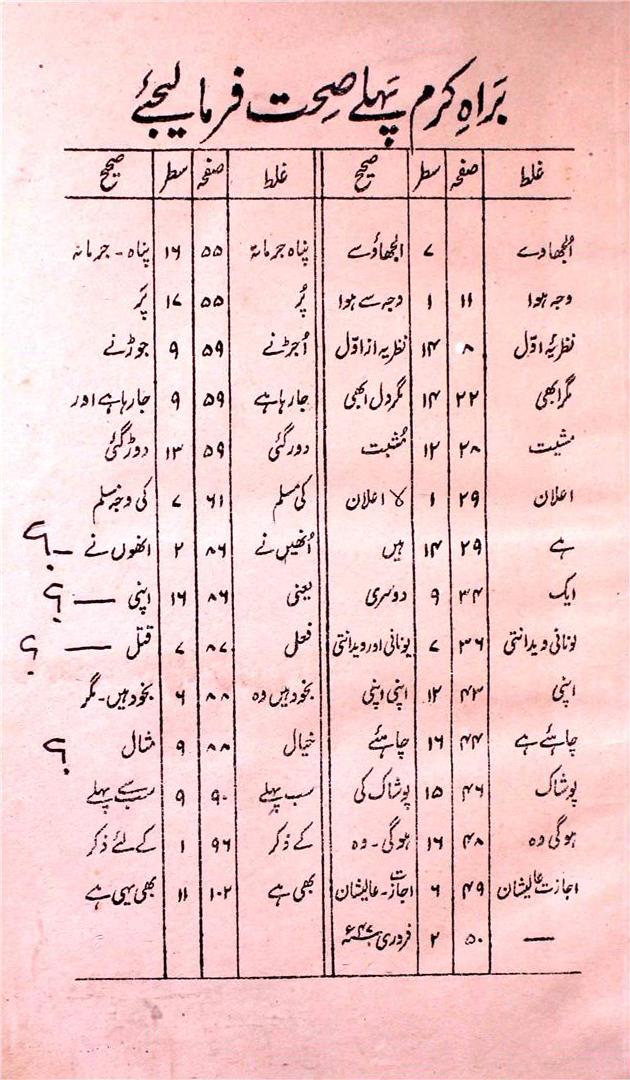 بَراہِ کرم پہلے صِحت فرما لیجئے
غلط صفحہ سطر صحیح غلط صفحہ سطر صحیح
اُلجھاوے ۷ الجھاؤسے پناہ جرمانہ ۵۵ ۱۶ پناہ - جرمانہ
وجہ ہوا ۱۱ ۱ وجہ سے ہوا پُر ۵۵ ۱۷ پَر
نظریۂ اوّل ۸ ۱۴ نظریہ از اوّل اُجڑنے ۵۹ ۹ جوڑنے
مگر ابھی ۲۲ ۱۴ مگر دل ابھی جارہا ہے ۵۹ ۹ جارہا ہے اور
مشیت ۲۸ ۱۲ مُثبت دور گئی ۵۹ ۱۳ دوڑ گئی
اعلان ۲۹ ۱ لا اعلان کی مسلم ۶۱ ۷ کی وجہ مسلم
ہے ۲۹ ۱۴ ہیں اُنھیں نے ۸۶ ۲ انھوں نے - ؟
ایک ۳۴ ۹ دوسری یعنی ۸۶ ۱۶ اپنی — ؟
یونانی ویدانتی ۳۶ ۷ یونانی اور ویدانتی فعل ۸۷ ۷ قتل — ؟
اپنی ۴۳ ۱۲ اپنی اپنی بخود ہیں وہ ۸۸ ۶ بخود ہیں - مگر
چاہئے ہے ۴۴ ۱۶ چاہئے خیال ۸۸ ۹ مثال ؟
پوشاک ۴۶ ۱۵ پوشاک کی سب پہلے ۹۰ ۹ سب سے پہلے
ہوگی وہ ۴۸ ۱۶ ہوگی - وہ کے ذکر ۹۶ ۱ کے لئے ذکر
اجازت عالیشان ۴۹ ۶ اجازت - عالیشان بھی ہے ۱۰۲ ۱۱ بھی یہی ہے
— ۵۰ ۲ فروری ۴۷ء